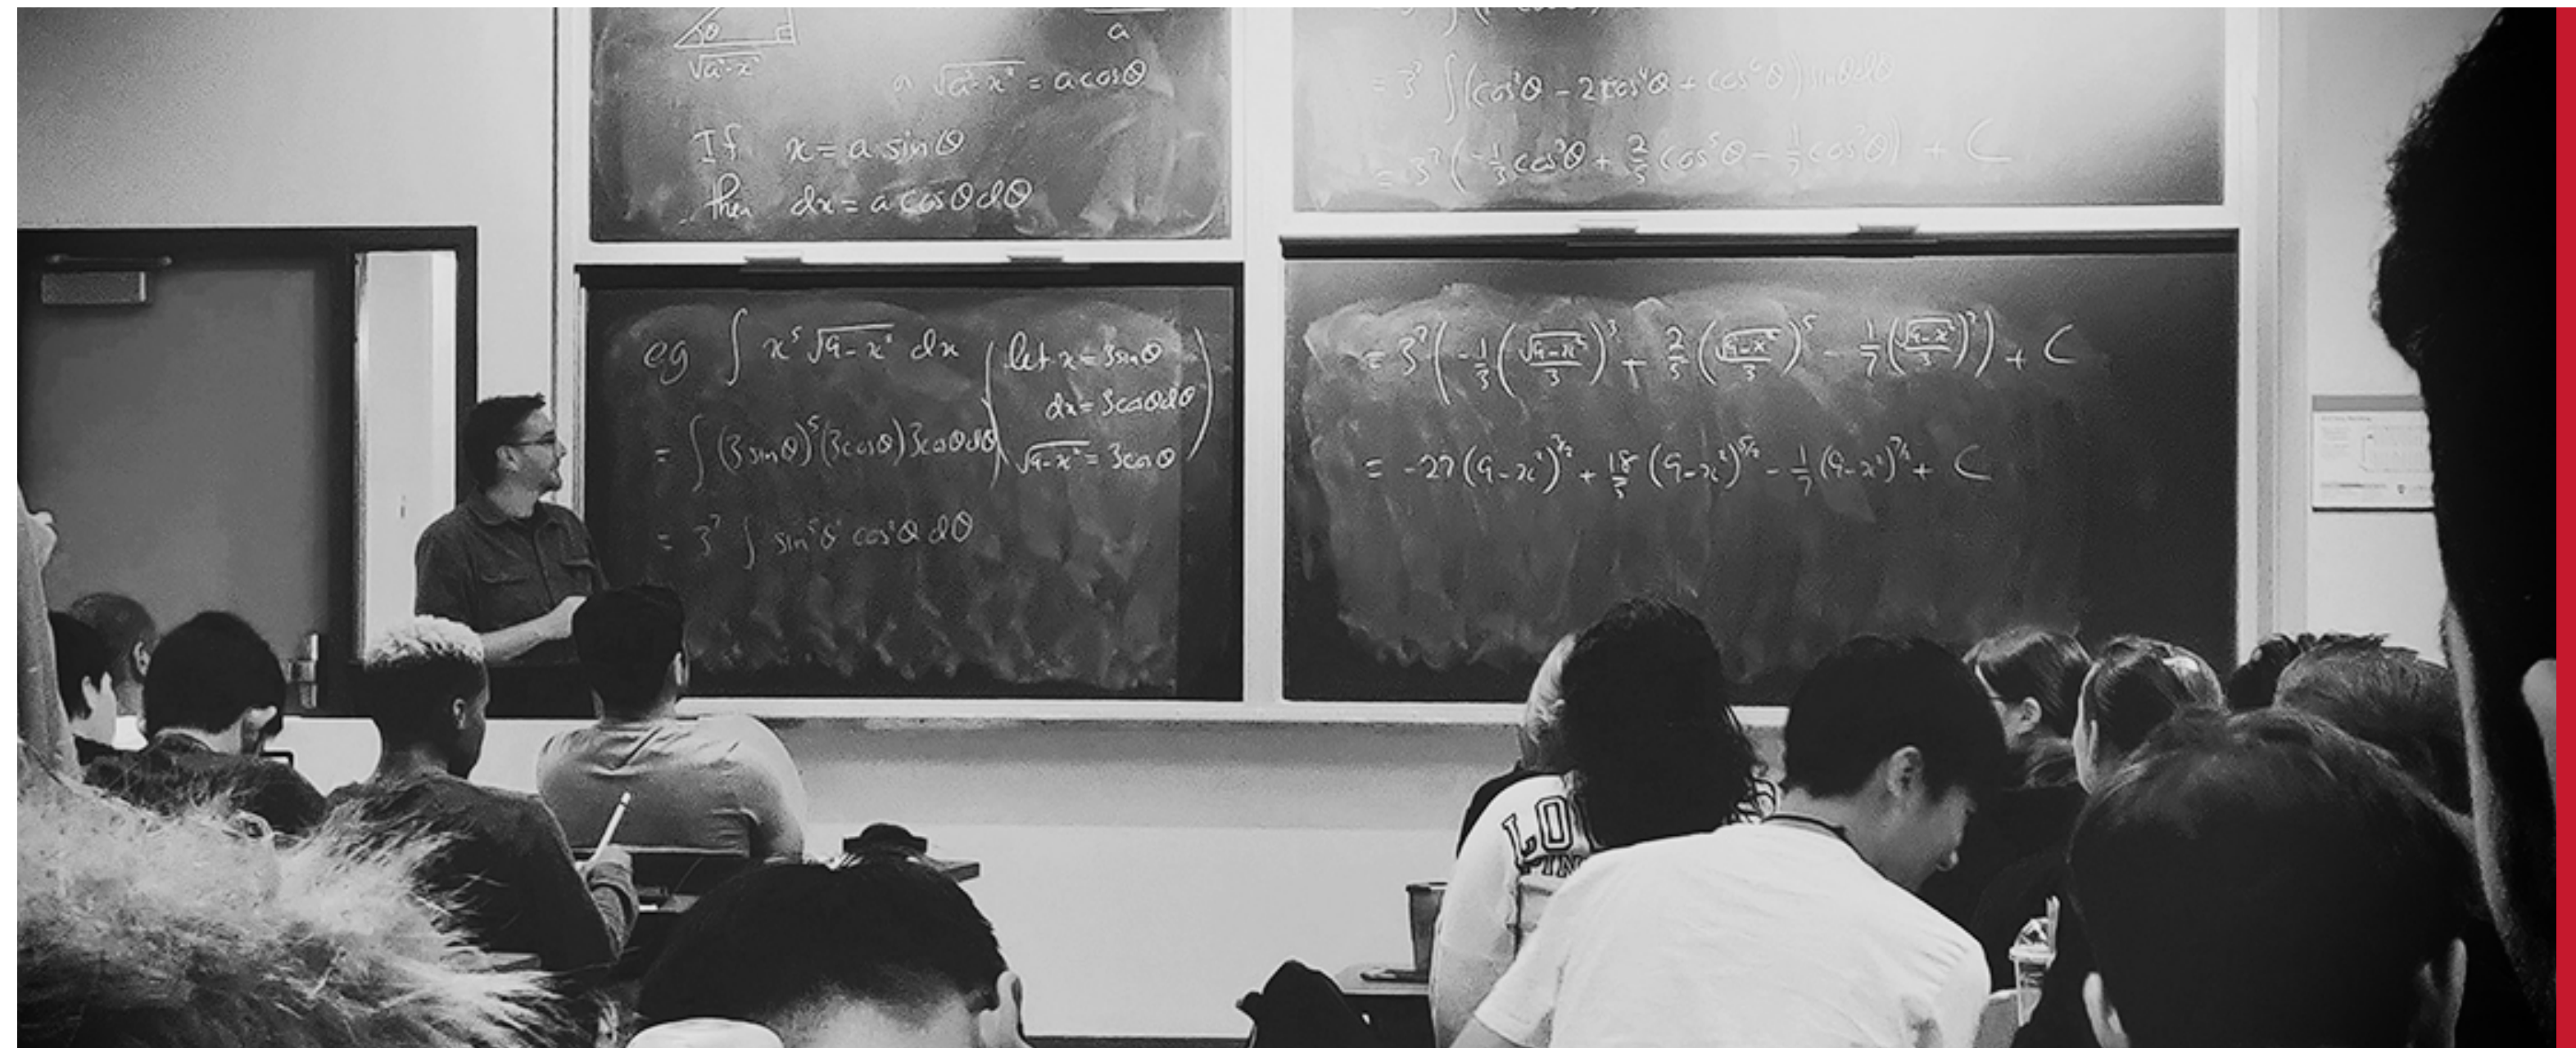 θ
√a²-x²
a
√a²-x² = a cosθ
If x = a sinθ
then dx = a cosθ dθ
eg ∫ x⁵ √9-x² dx (let x = 3sinθ
dx = 3cosθdθ
√9-x² = 3cosθ)
= ∫ (3sinθ)⁵(3cosθ) 3cosθdθ
= 3⁷ ∫ sin⁵θ cos²θ dθ
= 3⁷ ∫(cos²θ - 2cos⁴θ + cos⁶θ) sinθdθ
= 3⁷ (-1/3 cos³θ + 2/5 cos⁵θ - 1/7 cos⁷θ) + C
= 3⁷ (-1/3 (√9-x²/3)³ + 2/5 (√9-x²/3)⁵ - 1/7 (√9-x²/3)⁷) + C
= -27 (9-x²)^3/2 + 18/5 (9-x²)^5/2 - 1/7 (9-x²)^7/2 + C
LO